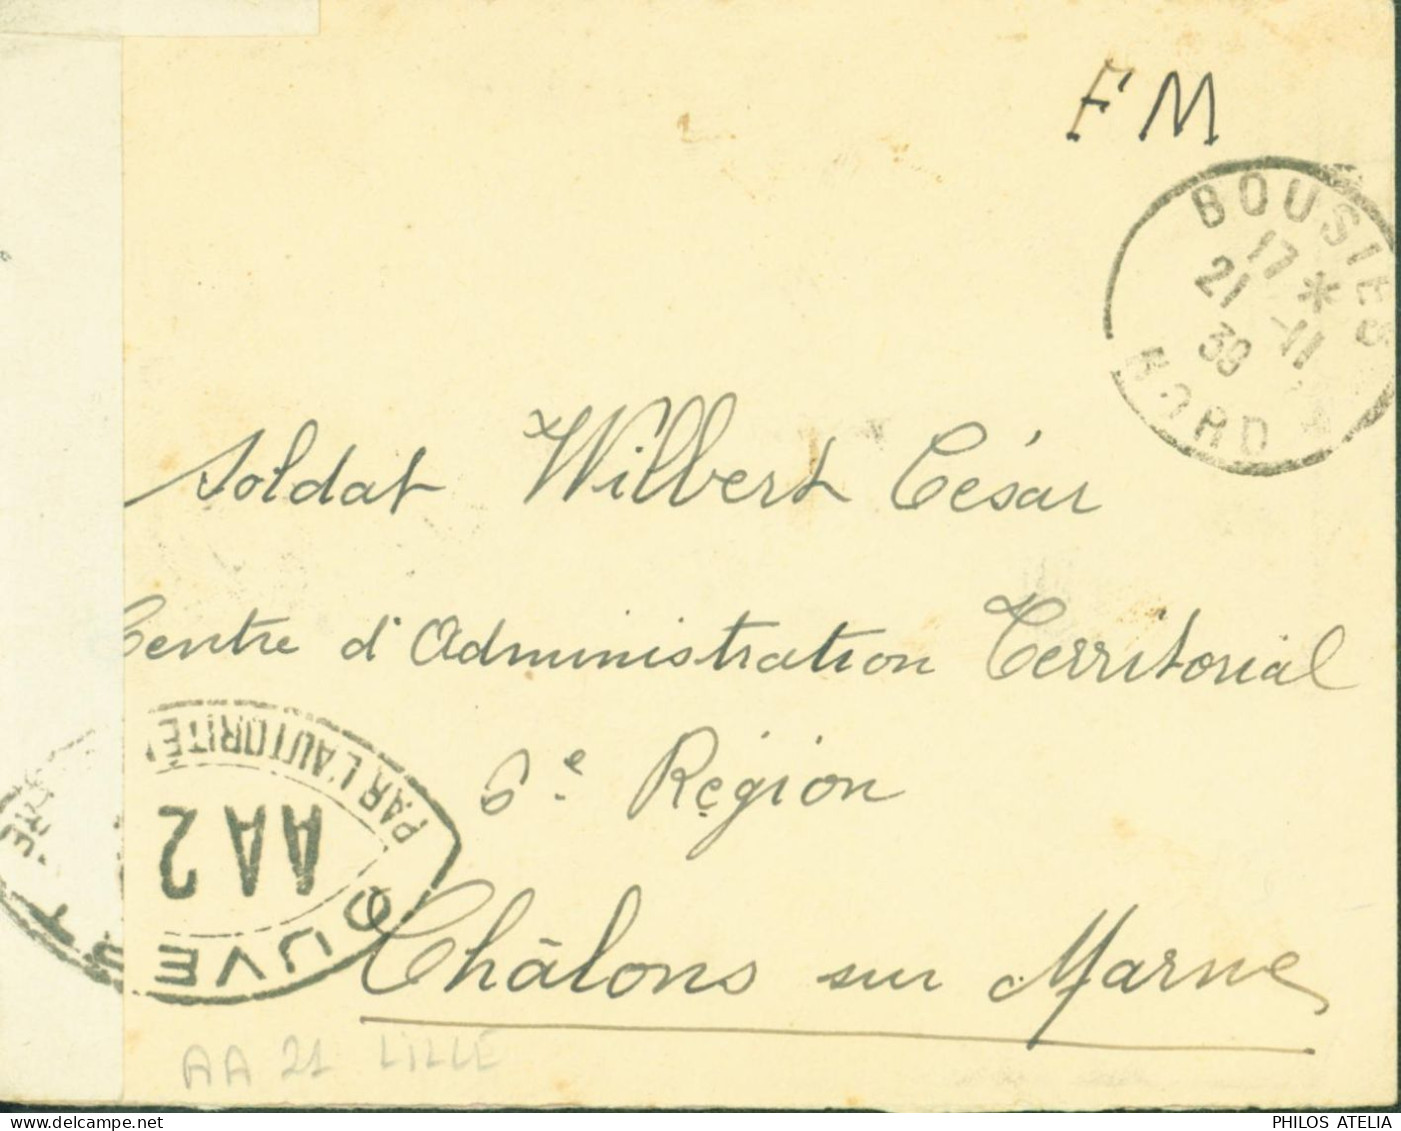 FM
BOUSIES
17 *
21 -11
39
NORD
Soldat Wilbert César
Centre d'Administration Territorial
6e Région
Châlons sur Marne
OUVERT
PAR L'AUTORITÉ
AA2
AA 21 LILLE
PHILOS ATELIA